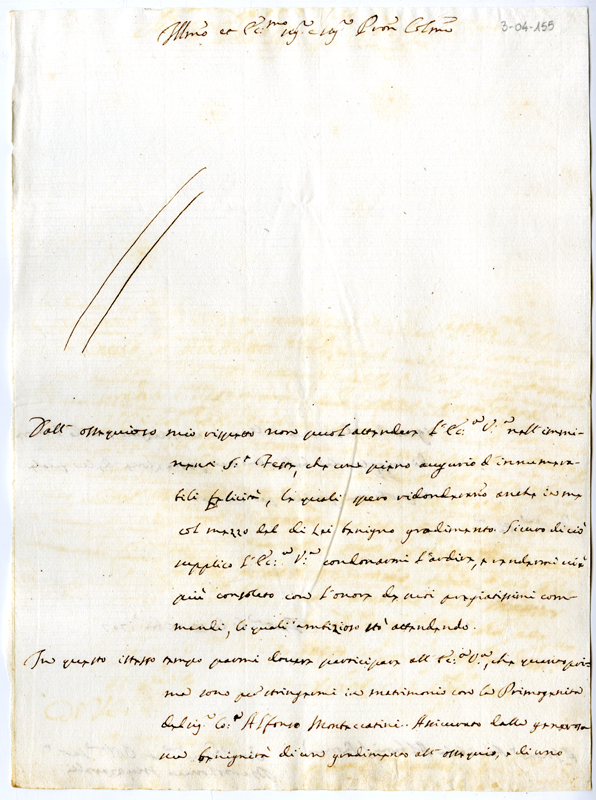 Illmo et Ecc.mo Sig.r e Sig.r Pron Colmo
3-04-155
Dall' ossequioso mio rispetto non puol attendere l'Ecc.a V.a nell'immi-
nenti S.te Feste, che un pieno augurio d'innumera-
bili felicità, le quali spero ridonderanno anche in me
col mezzo del di Lei benigno gradimento. Sicuro di ciò
supplico l'Ecc.a V.a condonarmi l'ardire, e rendermi
più consolato con l'onore de suoi pregiatissimi com-
mandi, le quali ambizioso stò attendendo.
In questo istesso tempo parmi dovere participare all'Ecc.a V.a, che quanto pri-
ma sono per stringermi in matrimonio con la Primogenita
del Sig.r Co: Alfonso Montecatini. Assicurato dalla generosa
sua benignità di un gradimento all'ossequio, e di uno